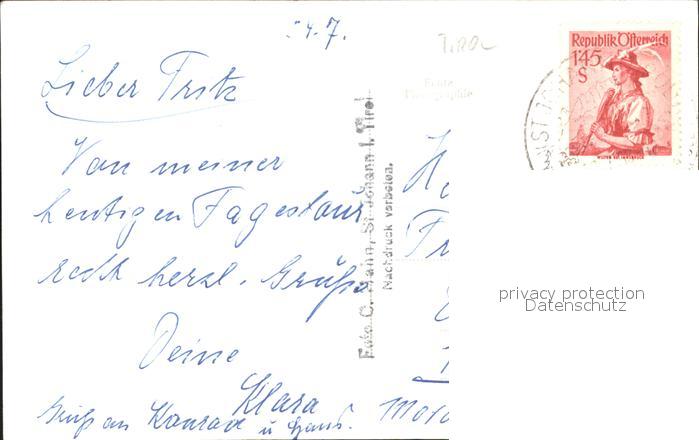 24.7.
TIROL
Republik Österreich
1'45
S
WILTEN BEI INNSBRUCK
Echte
Photographie
Lieber Fritz
Von meiner
heutigen Tagestour
recht herzl. Grüße
Deine
Klara
Gruß an Konrad
u Hans.
Foto C. St. Johann i. Tirol
Nachdruck verboten.
privacy protection
Datenschutz